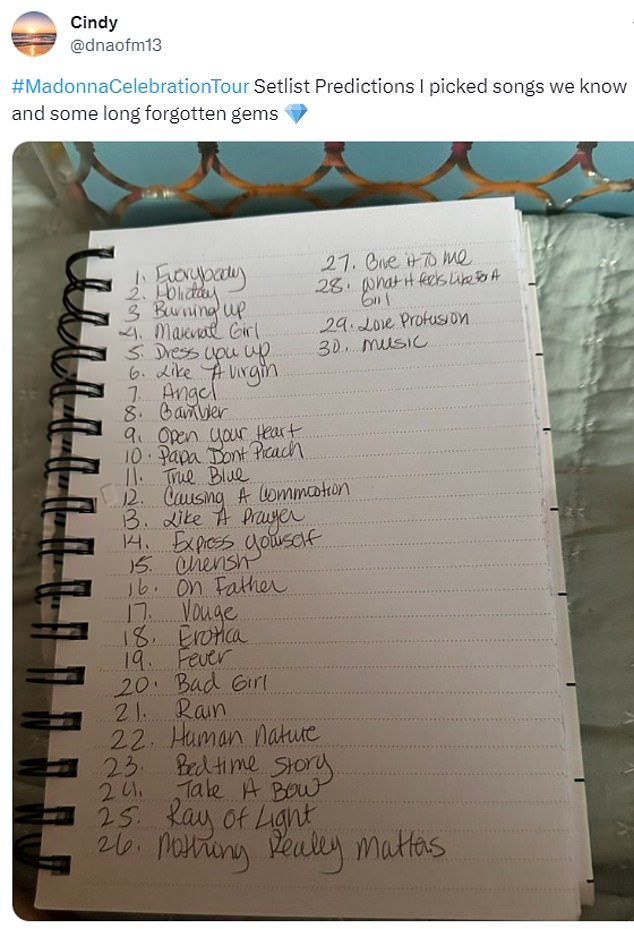 Cindy
@dnaofm13
#MadonnaCelebrationTour Setlist Predictions I picked songs we know
and some long forgotten gems 💎
1. Everybody
2. Holiday
3 Burning up
4. Material Girl
5. Dress you up
6. Like A Virgin
7. Angel
8. Gambler
9. Open your Heart
10. Papa Dont Preach
11. True Blue
12. Causing A Commotion
13. Like A Prayer
14. Express yourself
15. Cherish
16. Oh Father
17. Vouge
18. Erotica
19. Fever
20. Bad Girl
21. Rain
22. Human Nature
23. Bedtime Story
24. Take A Bow
25. Ray of Light
26. Nothing Realey Matters
27. Give it To me
28. What it feels Like for A
Girl
29. Love Profusion
30. Music